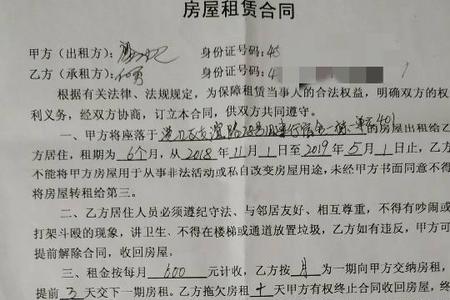 房屋租赁合同
甲方（出租方）： 身份证号码：4
乙方（承租方）： 身份证号码：4
根据有关法律、法规规定，为保障租赁当事人的合法权益，明确双方的权
利义务，经双方协商，订立本合同，供双方共同遵守。
一、甲方将座落于 401 的房屋出租给乙
方居住，租期为 6个 月，从 2018 年 11 月 1 日至 2019 年 5 月 1 日止，乙方
不能将甲方房屋用于从事非法活动或私自改变房屋用途，未经甲方书面同意不得
将房屋转租给第三。
二、乙方居住人员必须遵纪守法、与邻居友好、相互尊重，不得有吵闹或
打架斗殴的现象，讲卫生、不得在楼梯或通道放置垃圾，乙方如有违反，甲方可
提前解除合同，收回房屋，
三、租金按每月 600 元计收，乙方按 月 为一期向甲方交纳房租，
提前 3 天交下一期房租。乙方拖欠房租 十 天甲方有权终止合同收回房屋，